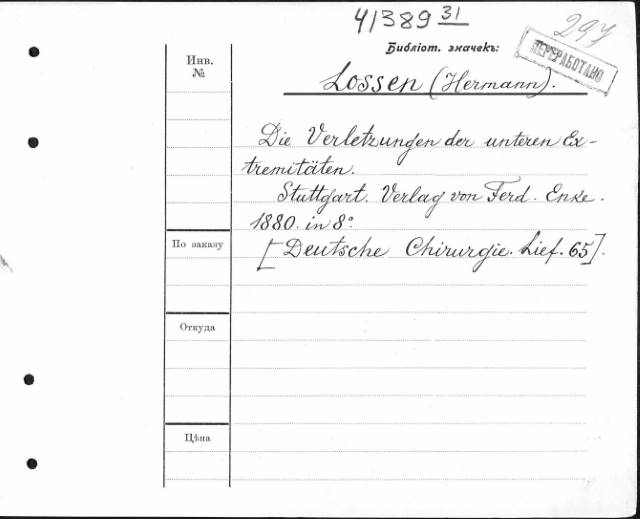 41389 31
297
Библіот. значекъ:
ПЕРЕРАБОТАНО
Инв.
№
Lossen (Hermann).
Die Verletzungen der unteren Ex-
tremitäten.
Stuttgart. Verlag von Ferd. Enke.
1880. in 8°
По заказу
[Deutsche Chirurgie. Lief. 65].
Откуда
Цѣна